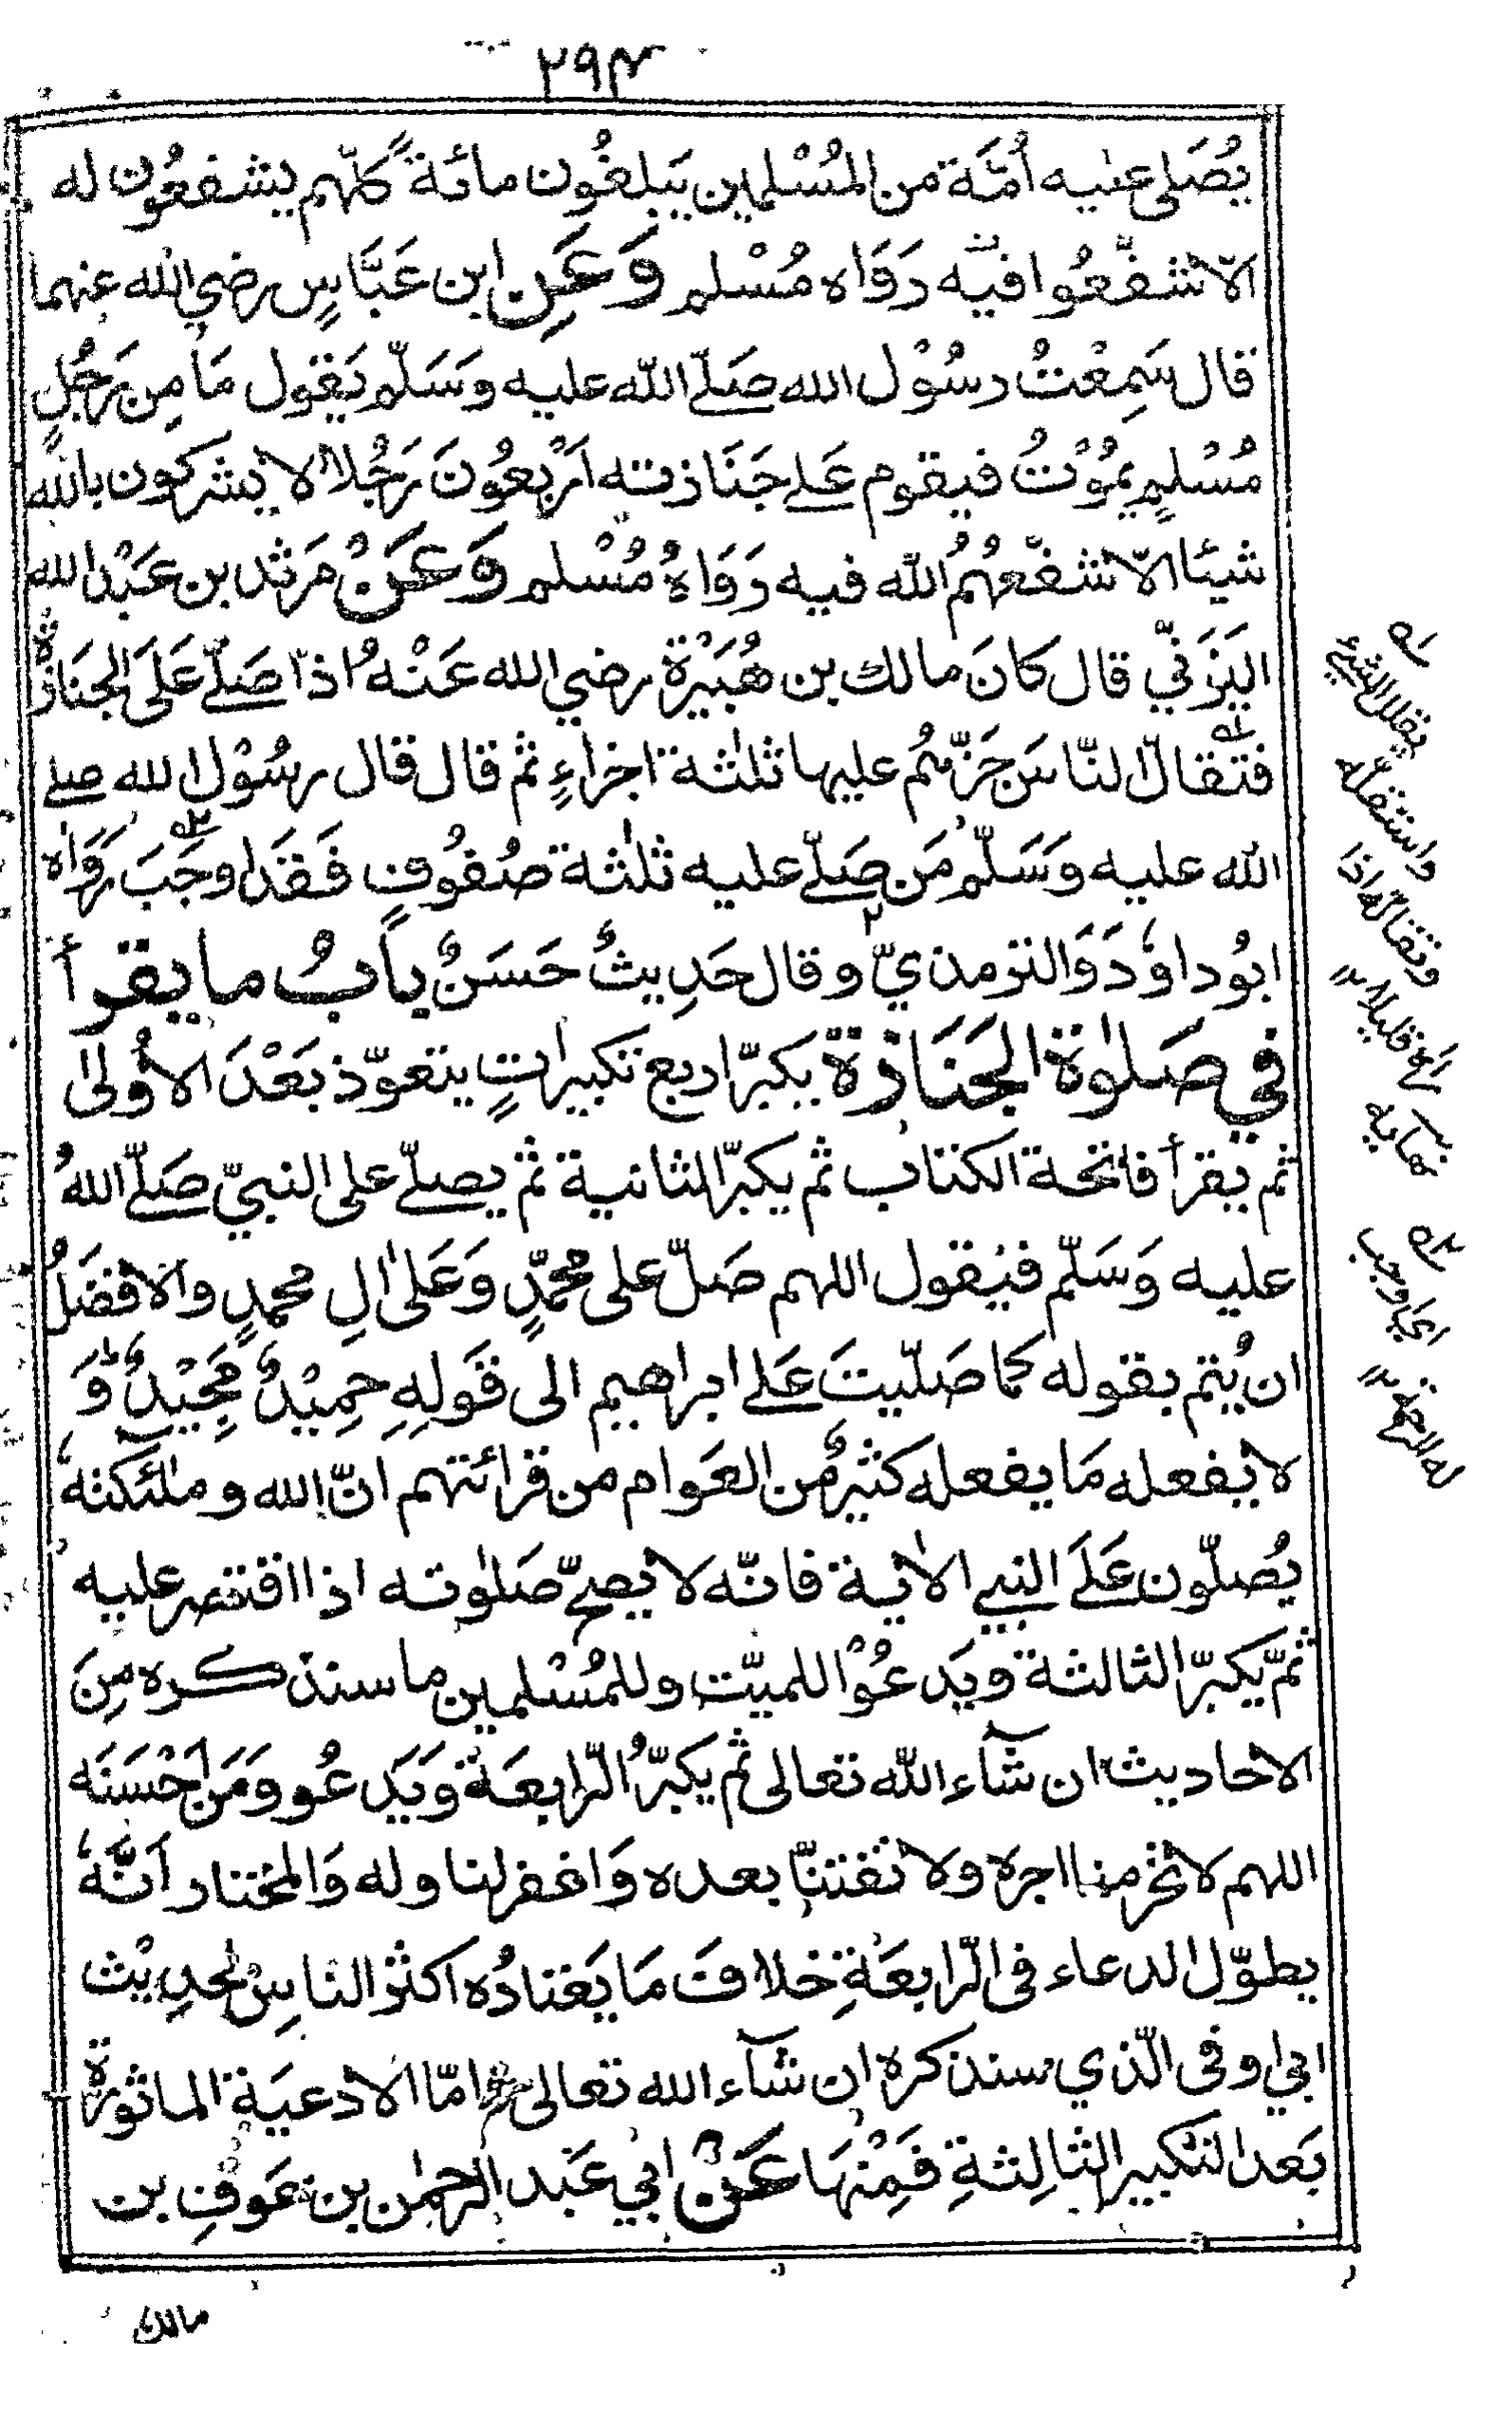 ٢٩٤
يُصَلى عليه أُمَّة من المُسْلمين يَبلغُون مائةً كلّهم يشفعُون له
الّا شفّعُوا فيه رَوَاه مُسْلم وَعَنِ ابن عَبَّاسٍ رضي الله عنهما
قال سَمِعْتُ رسُوْل الله صَلّے الله عليه وسَلّم يَقول مَا مِن رَجُلٍ
مُسْلمٍ يمُوْتُ فيقوم عَلے جَنَازته اَرْبعُونَ رَجُلا لا يشركون بالله
شيئا الّا شفّعهُمُ الله فيه رَوَاهُ مُسْلم وَعَنْ مرَثد بن عَبْد الله
اليَزَنيّ قال كانَ مالك بن هُبَيْرة رضي الله عَنْهُ اذا صَلّے عَلَى الجنَازة
فتَقالّ النّاسَ جَزّءهُم عليها ثلٰثة اجزاءٍ ثم قال قال رسُوْل الله صلے
الله عليه وَسَلّم مَن صَلّے عليه ثلٰثة صُفُوفٍ فَقَد اوجَبَ رَوَاه
ابُو داوٗدَ وَالترمذيّ وقال حَدِيثٌ حَسَنٌ بابُ ما يقرأ
في صَلٰوة الجَنَازة يكبّر اربع تكبيراتٍ يتعوّذ بَعْدَ الاُولىٰ
ثم يقرأ فاتحة الكتاب ثم يكبّر الثانية ثم يصلّے على النبيّ صَلّے اللهُ
عليه وَسَلّم فيَقول اللهم صَلّ على محمّدٍ وَعَلىٰ اٰلِ محمدٍ والافضَلُ
ان يُتم بقوله كما صَلّيتَ عَلے ابراهيم الى قَولِهِ حمِيْدٌ مَّجِيْدٌ وَ
لا يفعله مَا يفعله كثيرٌ من العَوام من قرائتهم انّ الله وملٰئكته
يُصلّون عَلَے النبي الاٰية فانّه لا يصحّ صَلٰوته اذا اقتصر عليه
ثمّ يكبّر الثالثة ويَدعُوْ للميّت وللمُسْلمين ما سنذكره مِنَ
الاحاديث ان شآء الله تعالى ثم يكبّرُ الرّابعَة وَيَدعُو وَمَن اَحْسَنَه
اللهم لا تحرمنا اجره ولا تفتنّا بعده وَاغفر لنا وله وَالمختار اَنّهٗ
يطوّل الدعاء فى الرّابعَةِ خلافَ مَا يَعْتادُه اكثر الناسِ لحدِيْث
ابي اوفى الّذي سنذكره ان شآء الله تعالى امّا الادعيَة الماثورة
بَعد التكبير الثالِثةِ فَمِنْهَا عَنْ ابي عَبد الرحمٰن بن عَوفِ بن
يقلل الشيئ
واستقلّه
وتقالّه اذا
راٰه قليلا
نهايه
اى اوجب
له الرحمة
مالك